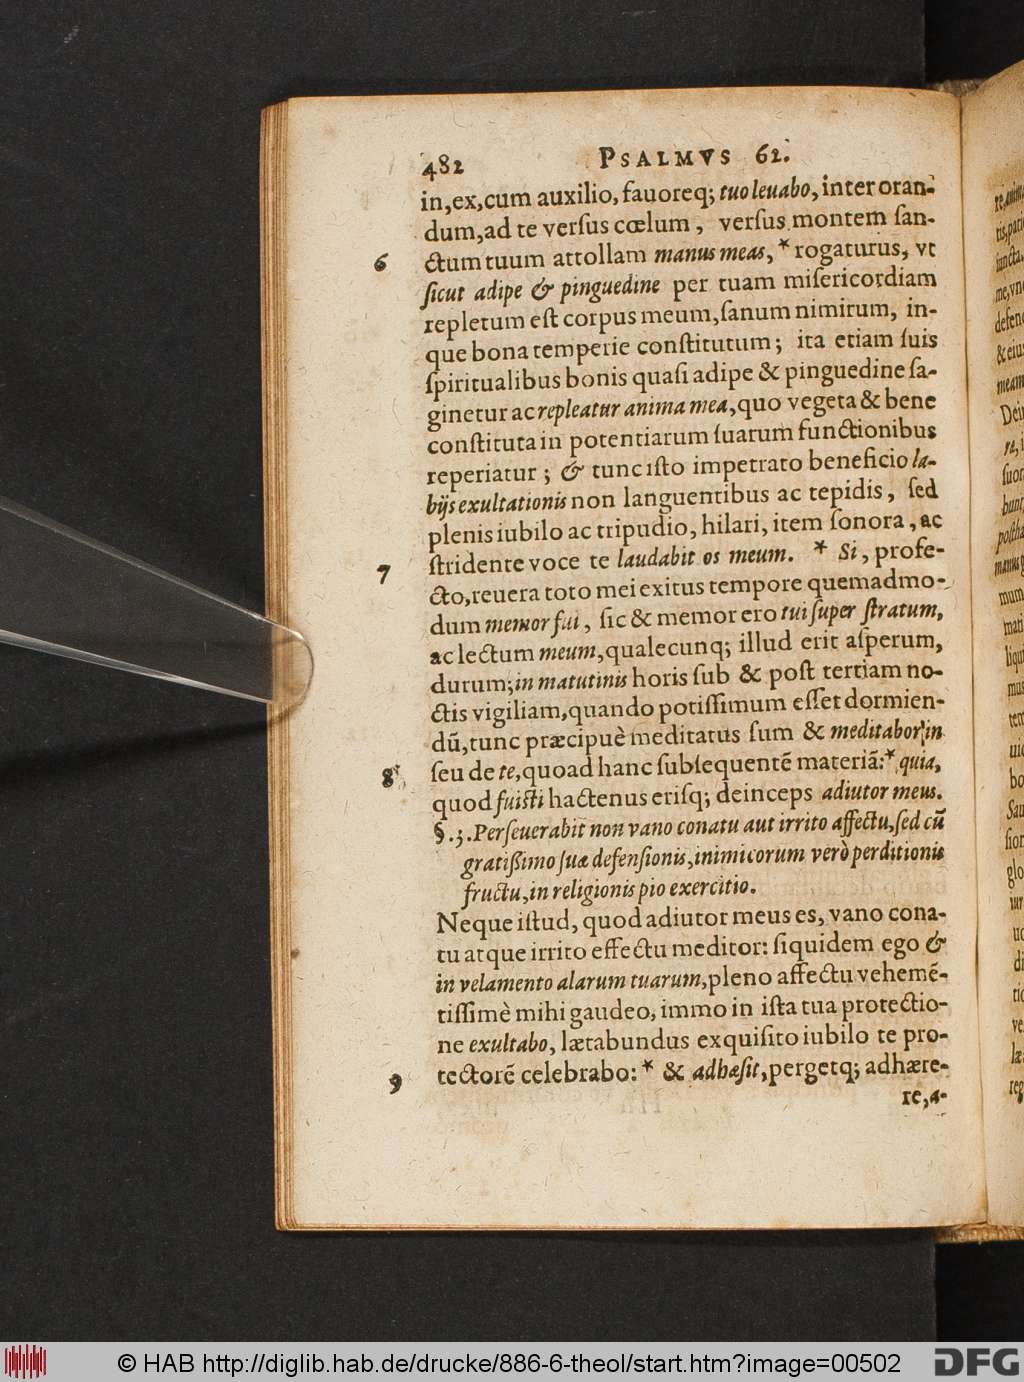 482 PSALMVS 62.
in,ex,cum auxilio, fauoreq; tuo leuabo, inter oran-
dum,ad te verſus cœlum, verſus montem ſan-
6 ctum tuum attollam manus meas, * rogaturus, vt
ſicut adipe & pinguedine per tuam miſericordiam
repletum eſt corpus meum, ſanum nimirum, in-
que bona temperie conſtitutum; ita etiam ſuis
ſpiritualibus bonis quaſi adipe & pinguedine ſa-
ginetur ac repleatur anima mea, quo vegeta & bene
conſtituta in potentiarum ſuarum functionibus
reperiatur; & tunc iſto impetrato beneficio la-
bijs exultationis non languentibus ac tepidis, ſed
plenis iubilo ac tripudio, hilari, item ſonora, ac
7 ſtridente voce te laudabit os meum. * Si, profe-
cto,reuera toto mei exitus tempore quemadmo-
dum memor fui, ſic & memor ero tui ſuper ſtratum,
ac lectum meum,qualecunq; illud erit aſperum,
durum; in matutinis horis ſub & poſt tertiam no-
ctis vigiliam,quando potiſſimum eſſet dormien-
dū,tunc præcipuè meditatus ſum & meditabor in
8 ſeu de te,quoad hanc ſubſequentē materiā:* quia,
quod fuiſti hactenus eriſq; deinceps adiutor meus.
§.3. Perſeuerabit non vano conatu aut irrito affectu,ſed cū
gratiſsimo ſuæ defenſionis,inimicorum verò perditionis
fructu,in religionis pio exercitio.
Neque iſtud, quod adiutor meus es, vano cona-
tu atque irrito effectu meditor: ſiquidem ego &
in velamento alarum tuarum,pleno affectu vehemē-
tiſſimè mihi gaudeo, immo in iſta tua protectio-
ne exultabo, lætabundus exquiſito iubilo te pro-
9 tectorē celebrabo: * & adhæſit,pergetq; adhære-
re,a-
© HAB http://diglib.hab.de/drucke/886-6-theol/start.htm?image=00502
DFG